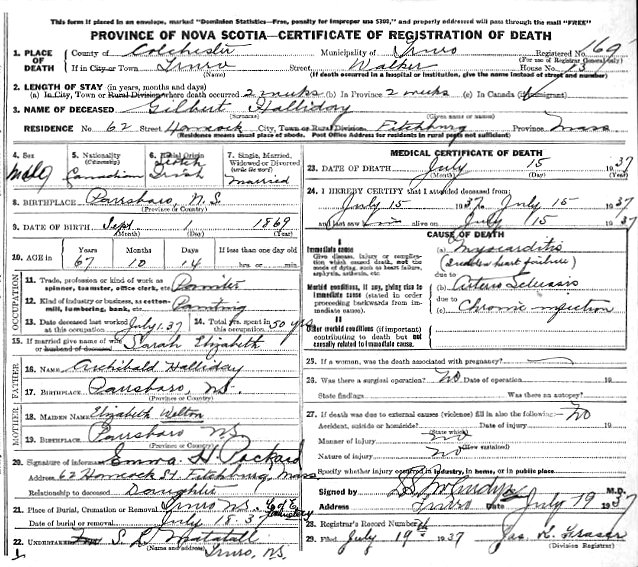 This form if placed in an envelope, marked "Dominion Statistics—Free, penalty for improper use $300," and properly addressed will pass through the mail "FREE"
PROVINCE OF NOVA SCOTIA—CERTIFICATE OF REGISTRATION OF DEATH
1. PLACE OF DEATH
County of Colchester Municipality of Truro Registered No. 169
(For use of Registrar General only)
If in City or Town Truro Street, Walker House No.
(Name) (If death occurred in a hospital or institution, give the name instead of street and number)
2. LENGTH OF STAY (in years, months and days)
(a) In City, Town or Rural Division where death occurred 2 weeks (b) In Province 2 weeks (c) In Canada (if immigrant)
3. NAME OF DECEASED Gilbert Halliday
(Surname) (Given name or names)
RESIDENCE No. 62 Street Hancock City, Town or Rural Division Fitchburg Province Mass
(Residence means usual place of abode. Post Office Address for residents in rural parts not sufficient)
4. Sex Male
5. Nationality (Citizenship) Canadian
6. Racial Origin Irish
7. Single, Married, Widowed or Divorced (write the word) Married
8. BIRTHPLACE Parrsboro, N.S.
(Province or Country)
9. DATE OF BIRTH Sept 1869
(Month) (Day) (Year)
10. AGE in Years Months Days If less than one day old
67 10 14 hrs. or min.
OCCUPATION
11. Trade, profession or kind of work as spinner, teamster, office clerk, etc. Painter
12. Kind of industry or business, as cotton-mill, lumbering, bank, etc. Painting
13. Date deceased last worked at this occupation July 1.37
14. Total yrs. spent in this occupation 50 yrs
15. If married give name of wife or husband of deceased Sarah Elizabeth
FATHER
16. NAME Archibald Halliday
17. BIRTHPLACE Parrsboro, NS.
(Province or Country)
MOTHER
18. MAIDEN NAME Elizabeth Welton
19. BIRTHPLACE Parrsboro NS
(Province or Country)
20. Signature of informant Emma H. Packard
Address 62 Hancock St Fitchburg, Mass
Relationship to deceased Daughter
21. Place of Burial, Cremation or Removal Truro NS. Cemetery
Date of burial or removal July 18.37
22. UNDERTAKER S. L.
(Name and address) Truro, NS.
MEDICAL CERTIFICATE OF DEATH
23. DATE OF DEATH July 15 1937
(Month) (Day) (Year)
24. I HEREBY CERTIFY that I attended deceased from:
July 15 1937 to July 15 1937
and last saw him alive on July 15 1937
CAUSE OF DEATH
I
Immediate cause
Give disease, injury or complication which caused death, not the mode of dying, such as heart failure, asphyxia, asthenia, etc.
(a) Myocarditis
(Sudden heart failure)
due to
Morbid conditions, if any, giving rise to immediate cause (stated in order proceeding backwards from immediate cause).
(b) Arterio Sclerosis
due to
(c) Chronic infection
II
Other morbid conditions (if important) contributing to death but not causally related to immediate cause.
25. If a woman, was the death associated with pregnancy?
26. Was there a surgical operation? No Date of operation 19
State findings Was there an autopsy?
27. If death was due to external causes (violence) fill in also the following:— No
Accident, suicide or homicide? Date of injury 19
(State which)
Manner of injury no
(How sustained)
Nature of injury no
Specify whether injury occurred in industry, in home, or in public place
Signed by M.D.
Address Truro Date July 19 1937
28. Registrar's Record Number
29. Filed July 19th 1937 Jas. L. Fraser
(Division Registrar)